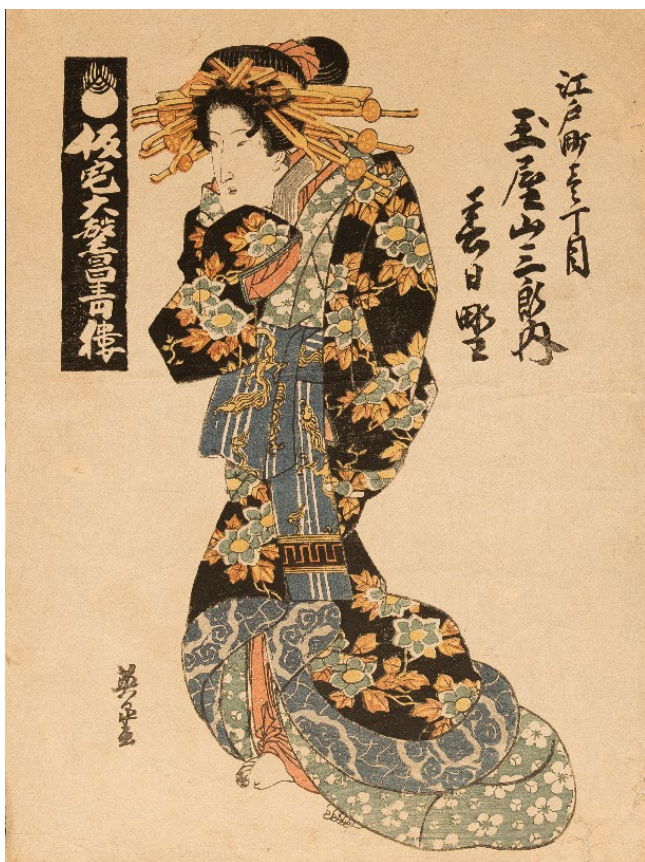 江戸町壱丁目
玉屋山三郎内
春日野
仮宅大繁昌青樓
英泉画